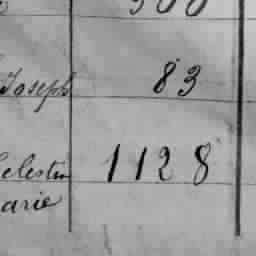 500
Joseph 83
Celestin 1128
arie